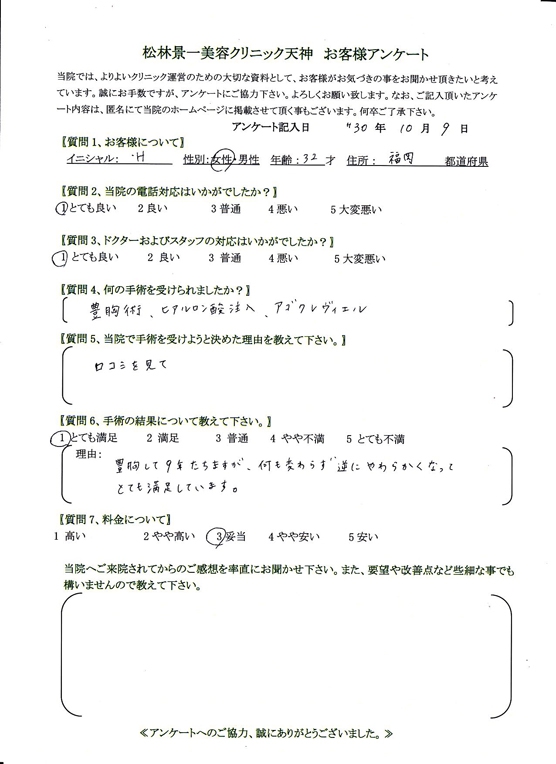 松林景一美容クリニック天神　お客様アンケート
当院では、よりよいクリニック運営のための大切な資料として、お客様がお気づきの事をお聞かせ頂きたいと考え
ています。誠にお手数ですが、アンケートにご協力下さい。よろしくお願い致します。なお、ご記入頂いたアンケ
ート内容は、匿名にて当院のホームページに掲載させて頂く事もございます。何卒ご了承下さい。
アンケート記入日　H30年 10月 9日
【質問1、お客様について】
イニシャル：H　性別：女性・男性　年齢：32才　住所：福岡　都道府県
【質問2、当院の電話対応はいかがでしたか？】
1とても良い　2良い　3普通　4悪い　5大変悪い
【質問3、ドクターおよびスタッフの対応はいかがでしたか？】
1とても良い　2良い　3普通　4悪い　5大変悪い
【質問4、何の手術を受けられましたか？】
豊胸術、ヒアルロン酸注入、アゴクレヴィエル
【質問5、当院で手術を受けようと決めた理由を教えて下さい。】
口コミを見て
【質問6、手術の結果について教えて下さい。】
1とても満足　2満足　3普通　4やや不満　5とても不満
理由：
豊胸して9年たちますが、何も変わらず逆にやわらかくなって
とても満足しています。
【質問7、料金について】
1高い　2やや高い　3妥当　4やや安い　5安い
当院へご来院されてからのご感想を率直にお聞かせ下さい。また、要望や改善点など些細な事でも
構いませんので教えて下さい。
≪アンケートへのご協力、誠にありがとうございました。≫